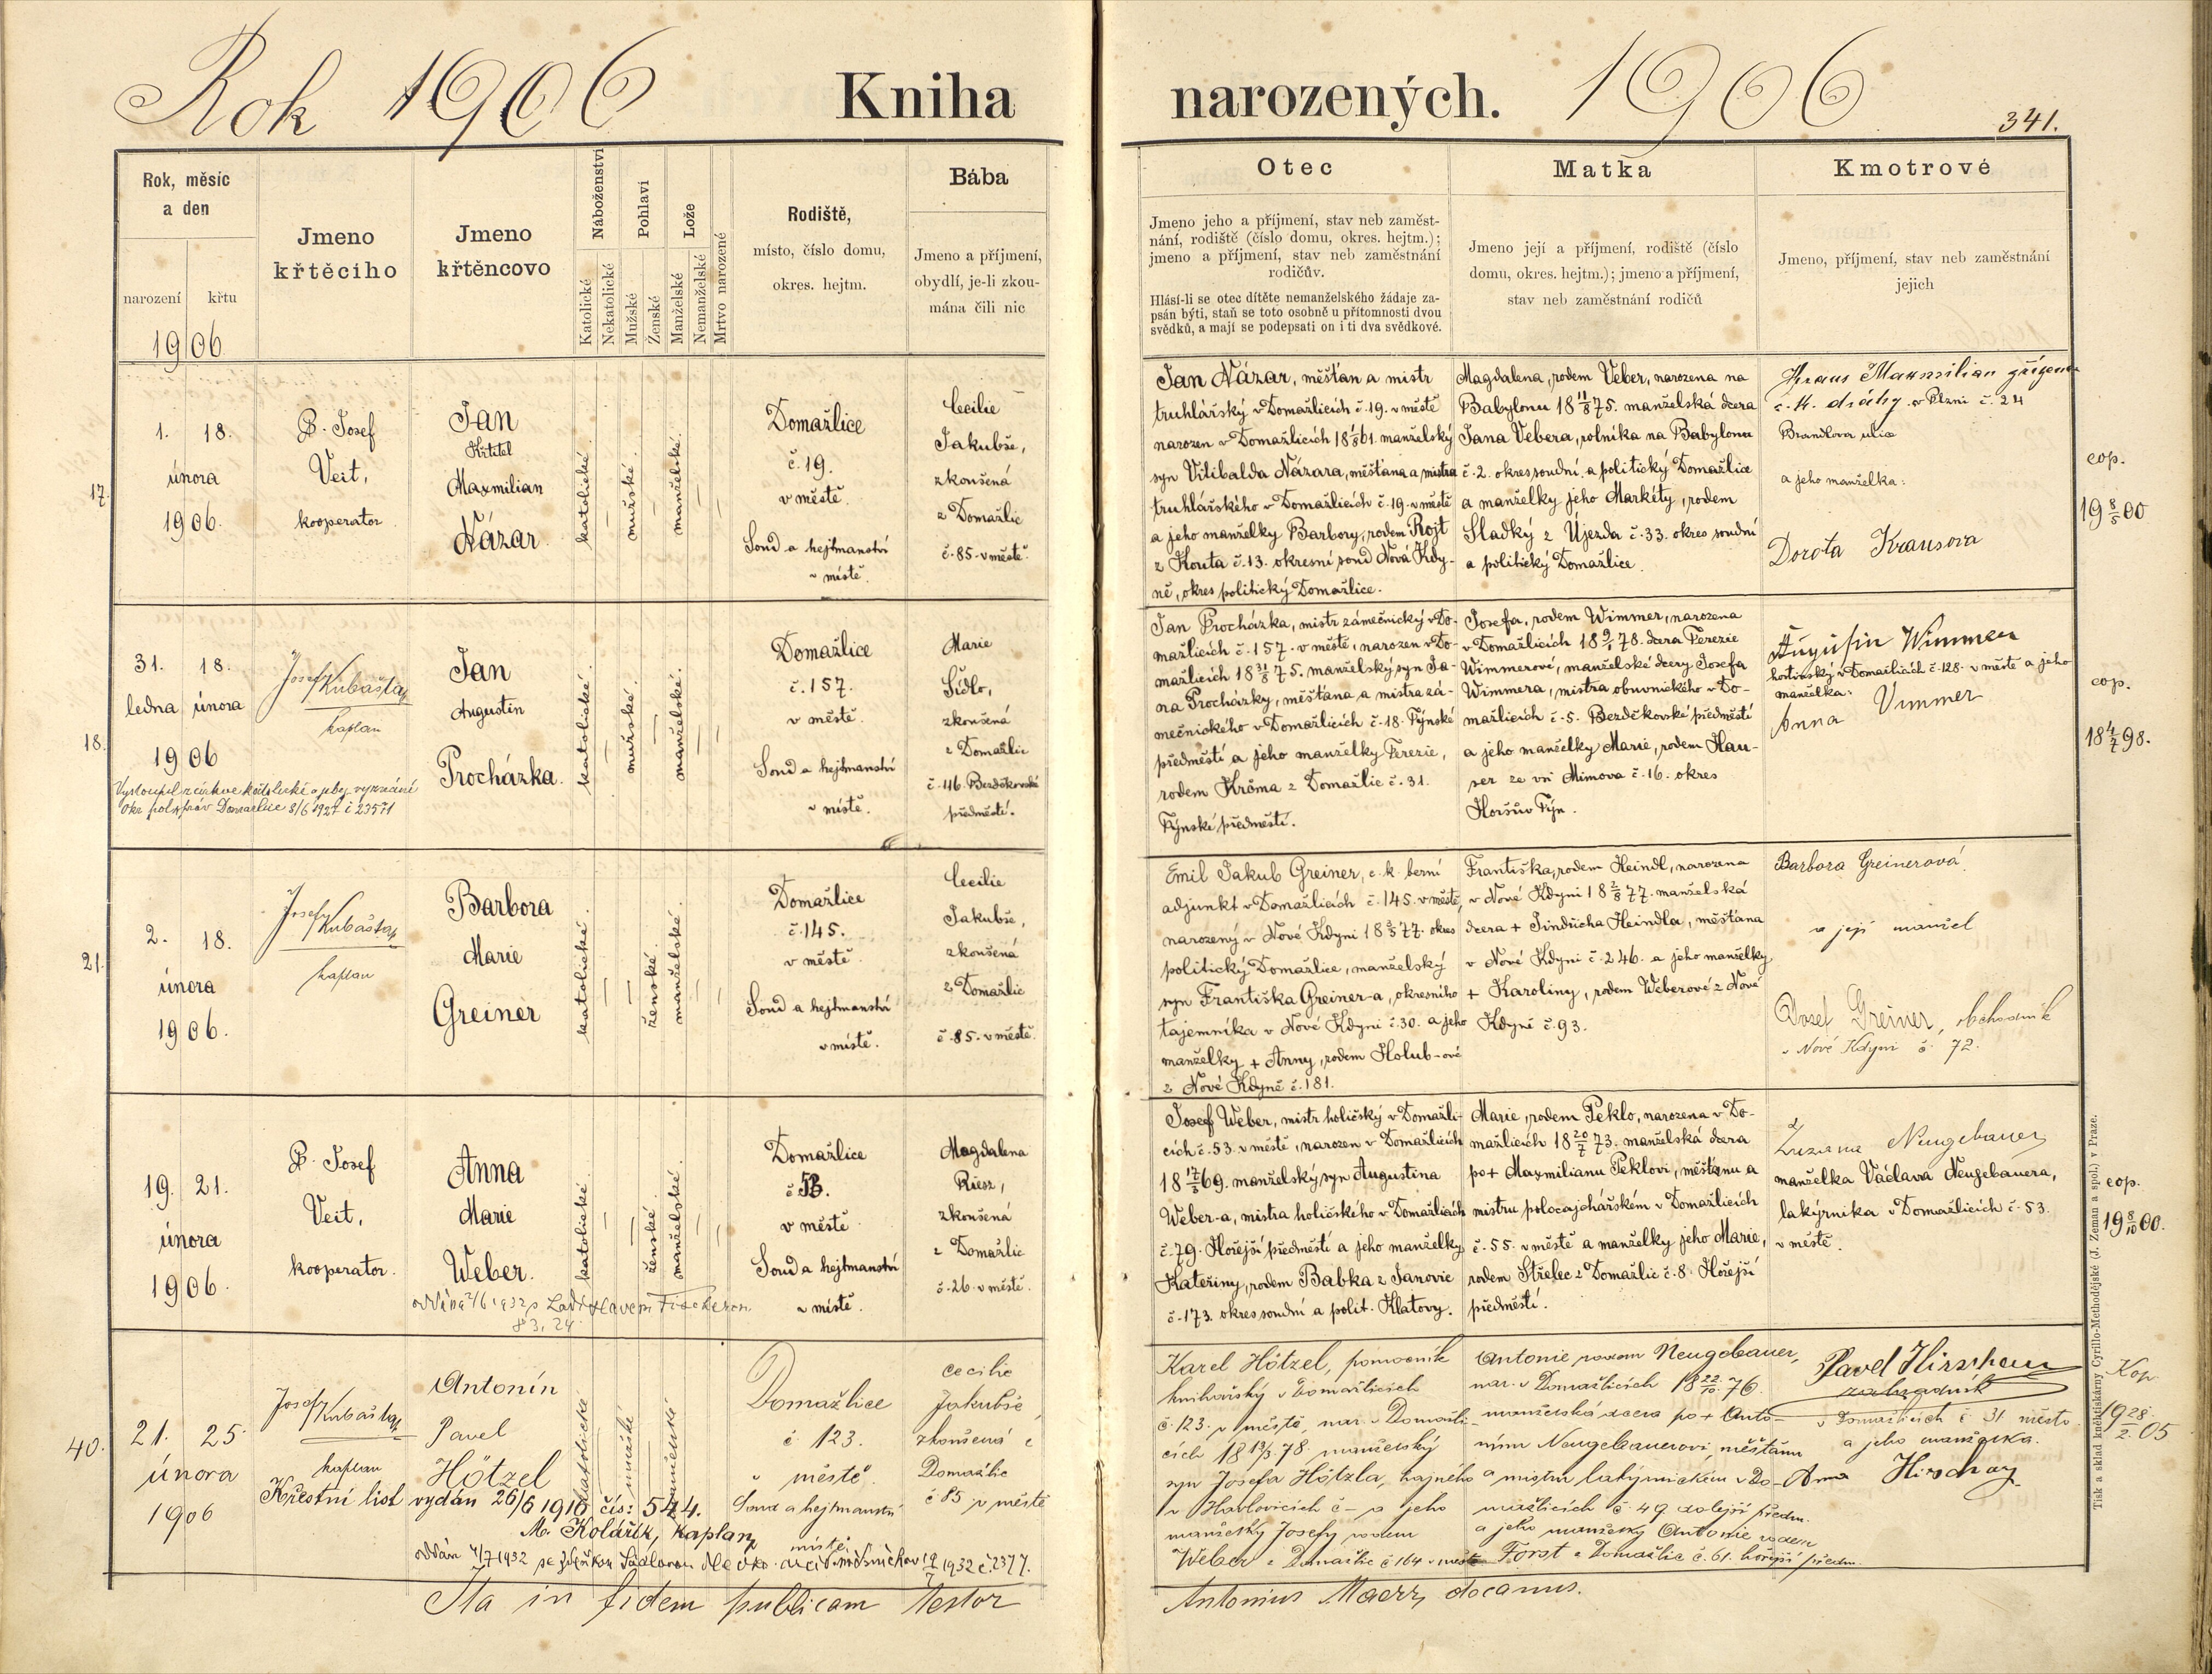 Rok 1906 Kniha narozených. 1906
341.
Rok, měsíc
a den
narození
křtu
1906
Jmeno
křtěcího
Jmeno
křtěncovo
Náboženství
Katolické
Nekatolické
Pohlaví
Mužské
Ženské
Lože
Manželské
Nemanželské
Mrtvo narozené
Rodiště,
místo, číslo domu,
okres. hejtm.
Bába
Jmeno a příjmení,
obydlí, je-li zkou-
mána čili nic
Otec
Jmeno jeho a příjmení, stav neb zaměst-
nání, rodiště (číslo domu, okres. hejtm.);
jmeno a příjmení, stav neb zaměstnání
rodičův.
Hlásí-li se otec dítěte nemanželského žádaje za-
psán býti, staň se toto osobně u přítomnosti dvou
svědků, a mají se podepsati on i ti dva svědkové.
Matka
Jmeno její a příjmení, rodiště (číslo
domu, okres. hejtm.); jmeno a příjmení,
stav neb zaměstnání rodičů
Kmotrové
Jmeno, příjmení, stav neb zaměstnání
jejich
17.
1. 18.
února
1906.
P. Josef
Veit,
kooperator
Jan
Křtitel
Maxmilian
Názar
katolické.
mužské.
manželské.
Domažlice
č. 19.
v městě.
Soud a hejtmanství
v místě.
Cecilie
Jakubše,
zkoušená
z Domažlic
č. 85. v městě.
Jan Názar, měšťan a mistr
truhlářský v Domažlicích č. 19. v městě
narozen v Domažlicích 18 1/5 61. manželský
syn Vilibalda Názara, měšťana a mistra
truhlářského v Domažlicích č. 19. v městě
a jeho manželky Barbory, rodem Rojt
z Kouta č. 13. okresní soud Nová Kdy-
ně, okres politický Domažlice.
Magdalena, rodem Veber, narozena na
Babylonu 18 11/8 75. manželská dcera
Jana Vebera, rolníka na Babylonu
č. 2. okres soudní a politický Domažlice
a manželky jeho Markéty, rodem
Sladký z Újezda č. 33. okres soudní
a politický Domažlice.
Kraus Maxmilian
dráhy v Plzni č. 24
Brandlova ulice
a jeho manželka:
Dorota Krausova
cop.
19 8/5 00
18.
31. 18.
ledna února
1906
Josef Kubašta
kaplan
Jan
Augustin
Procházka.
katolické.
mužské.
manželské.
Vystoupil z církve katolické a jest bez vyznání
Okr. pol. správ. Domažlice 8/6 1927 č 23571
Domažlice
č. 157.
v městě.
Soud a hejtmanství
v místě.
Marie
Sídlo,
zkoušená
z Domažlic
č. 46. Bezděkovské
předměstí.
Jan Procházka, mistr zámečnický v Do-
mažlicích č. 157. v městě, narozen v Do-
mažlicích 18 31/8 75. manželský syn Ja-
na Procházky, měšťana a mistra zá-
mečnického v Domažlicích č. 18. Týnské
předměstí a jeho manželky Terezie,
rodem Krčma z Domažlic č. 31.
Týnské předměstí.
Josefa, rodem Wimmer, narozena
v Domažlicích 18 9/1 78. dcera Terezie
Wimmerové, manželské dcery Josefa
Wimmera, mistra obuvnického v Do-
mažlicích č. 5. Bezděkovské předměstí
a jeho manželky Marie, rodem Hau-
ser ze vsi Mimova č. 16. okres
Horšův Týn.
Augustin Wimmer
hostinský v Domažlicích č. 128. v městě a jeho
manželka:
Anna Vimmer
cop.
18 4/7 98.
21.
2. 18.
února
1906.
Josef Kubašta
kaplan
Barbora
Marie
Greiner
katolické.
ženské.
manželské.
Domažlice
č. 145.
v městě.
Soud a hejtmanství
v místě.
Cecilie
Jakubše,
zkoušená
z Domažlic
č. 85. v městě.
Emil Jakub Greiner, c. k. berní
adjunkt v Domažlicích č. 145. v městě,
narozený v Nové Kdyni 18 3/5 77. okres
politický Domažlice, manželský
syn Františka Greiner-a, okresního
tajemníka v Nové Kdyni č. 30. a jeho
manželky + Anny, rodem Holub-ové
z Nové Kdyně č. 181.
Františka, rodem Heindl, narozena
v Nové Kdyni 18 2/8 77. manželská
dcera + Jindřicha Heindla, měšťana
v Nové Kdyni č. 246. a jeho manželky
+ Karoliny, rodem Weberové z Nové
Kdyně č. 93.
Barbora Greinerová
a její manžel
Josef Greiner, obchodník
v Nové Kdyni č. 72.
19. 21.
února
1906.
P. Josef
Veit,
kooperator.
Anna
Marie
Weber.
katolické.
ženské.
manželské.
oddána 2/6 1932 s Ladislavem Fischerem
83, 24
Domažlice
č. 53.
v městě
Soud a hejtmanství
v místě.
Magdalena
Riesz,
zkoušená
z Domažlic
č. 26. v městě.
Josef Weber, mistr holičský v Domažli-
cích č. 53. v městě, narozen v Domažlicích
18 17/3 69. manželský syn Augustina
Weber-a, mistra holičského v Domažlicích
č. 79. Hořejší předměstí a jeho manželky
Kateřiny, rodem Babka z Janovic
č. 173. okres soudní a polit. Klatovy.
Marie, rodem Peklo, narozena v Do-
mažlicích 18 20/7 73. manželská dcera
po + Maxmilianu Peklovi, měšťanu a
mistru polocajchářském v Domažlicích
č. 55. v městě a manželky jeho Marie,
rodem Střelec z Domažlic č. 8. Hořejší
předměstí.
Zuzana Neugebauer
manželka Václava Neugebauera,
lakýrníka v Domažlicích č. 53.
v městě.
cop.
19 8/10 00.
40.
21. 25.
února
1906
Josef Kubašta
kaplan
Antonín
Pavel
Hötzel
katolické
mužské
manželské
Křestní list vydán 26/6 1916 čís: 544.
M. Kolářík, kaplan
oddán 4/7 1932 se Zdeňkou Sádlovou 1932 č. 2377.
Domažlice
č. 123.
v městě.
Soud a hejtmanství
místě.
Cecilie
Jakubše,
zkoušená z
Domažlic
č 85 v městě
Karel Hötzel, pomocník
knihařský v Domažlicích
č. 123. v městě, nar. v Domažli-
cích 18 13/3 78. manželský
syn Josefa Hötzla, hajného
v Havlovicích č – a jeho
manželky Josefy rodem
Weber z Domažlic č 164 v městě
Antonie rodem Neugebauer,
nar. v Domažlicích 18 22/10 76.
manželská dcera po + Anto-
nínu Neugebauerovi, měšťanu
a mistru lakýrnickém v Do-
mažlicích č. 49 dolejší předm.
a jeho manželky Antonie rodem
Forst z Domažlic č. 61. hořejší předm.
Pavel Hirschau
zahradník
v Domažlicích č 31 město
a jeho manželka.
Anna
Kop.
19 28/2 05
Ita in fidem publicam testor
Antonius Maerz, decanus.
Tisk a sklad knihtiskárny Cyrillo-Methodějské (J. Zeman a spol.) v Praze.